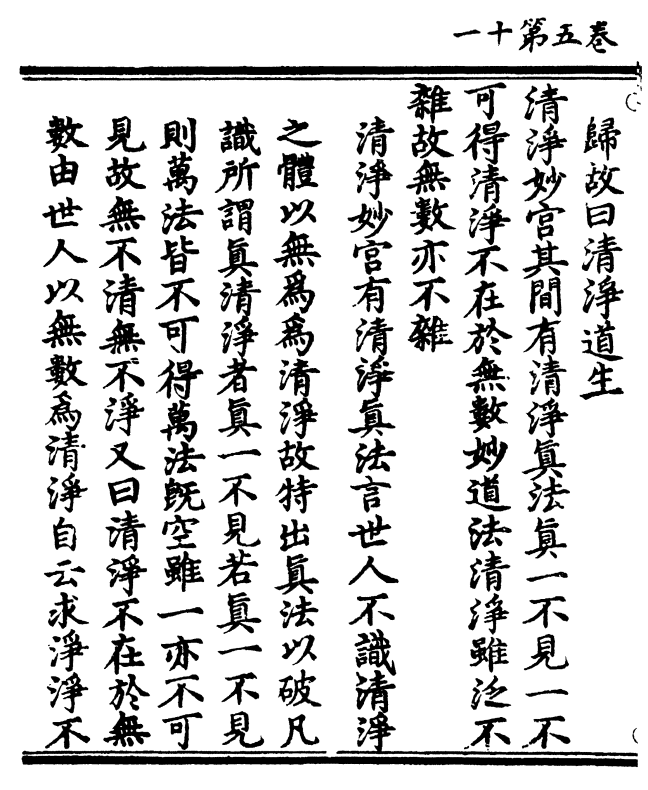 卷五第十一
歸故曰清淨道生
清淨妙宮其間有清淨眞法眞一不見一不
可得清淨不在於無數妙道法清淨雖泛不
雜故無數亦不雜
清淨妙宮有清淨眞法言世人不識清淨
之體以無爲爲清淨故特出眞法以破凡
識所謂眞清淨者眞一不見若眞一不見
則萬法皆不可得萬法旣空雖一亦不可
見故無不清無不淨又曰清淨不在於無
數由世人以無數爲清淨自云求淨淨不